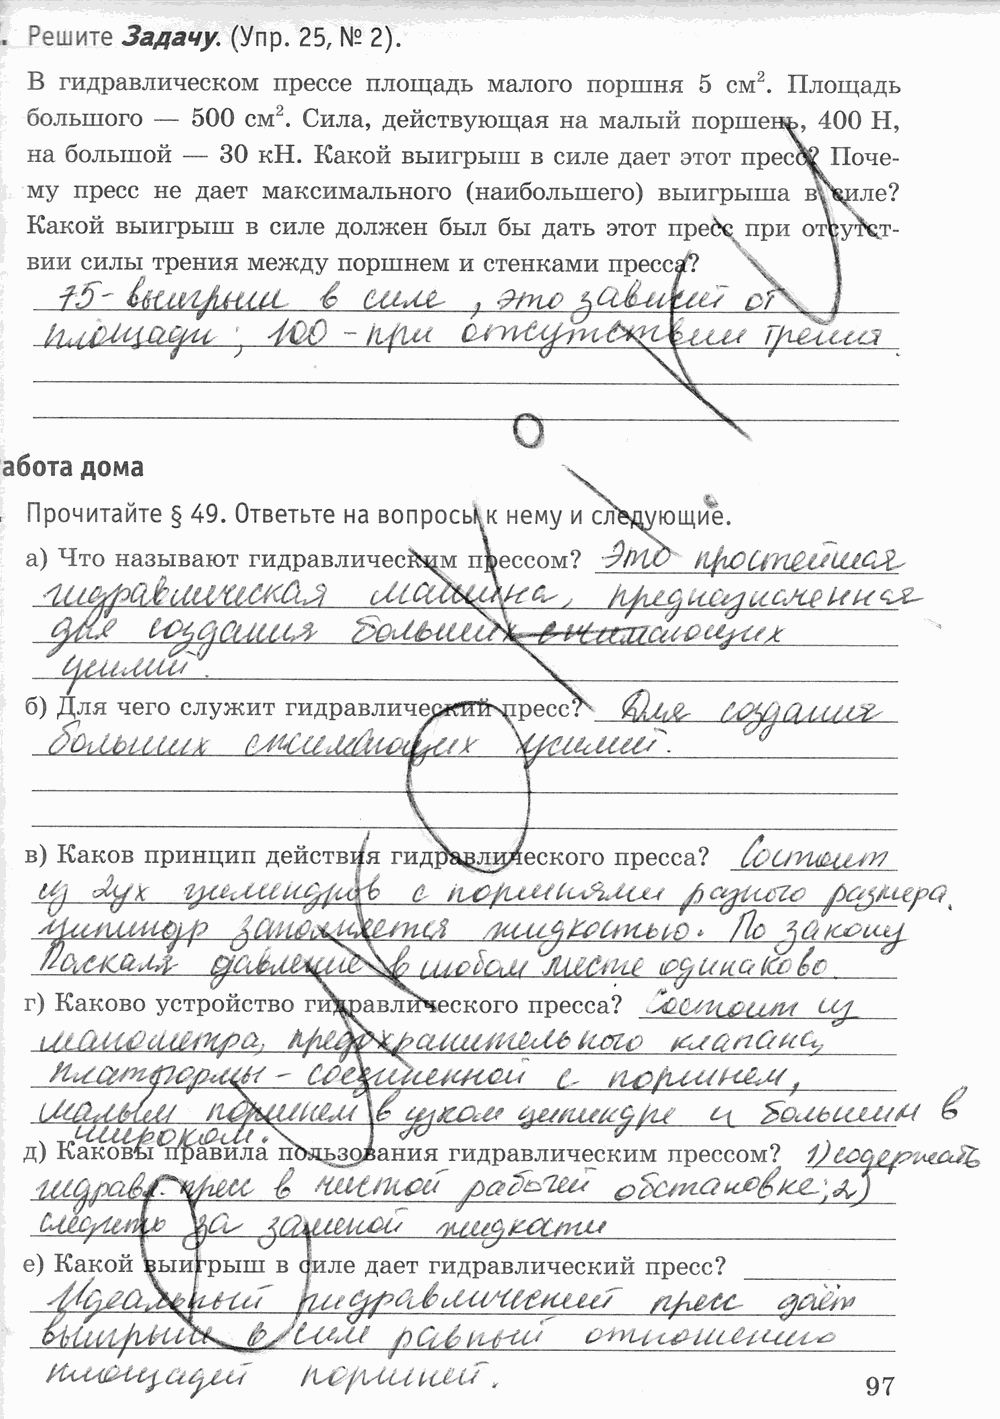 Решите Задачу. (Упр. 25, № 2).
В гидравлическом прессе площадь малого поршня 5 см². Площадь
большого — 500 см². Сила, действующая на малый поршень, 400 Н,
на большой — 30 кН. Какой выигрыш в силе дает этот пресс? Поче-
му пресс не дает максимального (наибольшего) выигрыша в силе?
Какой выигрыш в силе должен был бы дать этот пресс при отсутст-
вии силы трения между поршнем и стенками пресса?
75 - выигрыш в силе, это зависит от
площади; 100 - при отсутствии трения.
абота дома
Прочитайте § 49. Ответьте на вопросы к нему и следующие.
а) Что называют гидравлическим прессом? Это простейшая
гидравлическая машина, предназначенная
для создания больших сжимающих
усилий.
б) Для чего служит гидравлический пресс? Для создания
больших сжимающих усилий.
в) Каков принцип действия гидравлического пресса? Состоит
из 2ух цилиндров с поршнями разного размера.
цилиндр заполняется жидкостью. По закону
Паскаля давление в любом месте одинаково.
г) Каково устройство гидравлического пресса? Состоит из
манометра, предохранительного клапана,
платформы - соединенной с поршнем,
малым поршнем в узком цилиндре и большим в
широком.
д) Каковы правила пользования гидравлическим прессом? 1) содержать
гидравл. пресс в чистой рабочей обстановке; 2)
следить за заменой жидкости
е) Какой выигрыш в силе дает гидравлический пресс?
Идеальный гидравлический пресс даёт
выигрыш в силе равный отношению
площадей поршней.
97